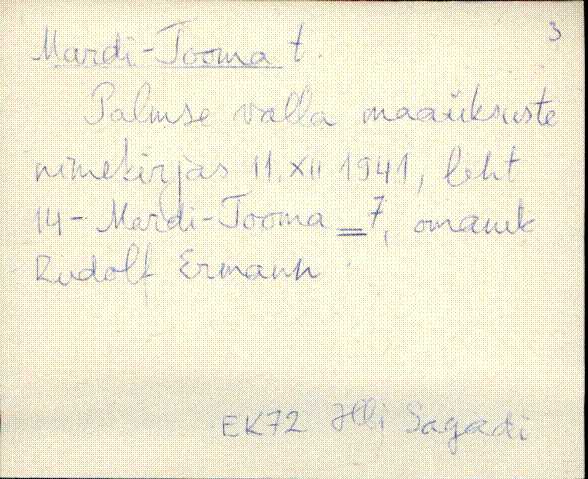 3
Mardi-Tooma t.
Palmse valla maaüksuste
nimekirjas 11. XII 1941, leht
14 - Mardi-Tooma = 7, omanik
Rudolf Ermann.
EK72 Sagadi